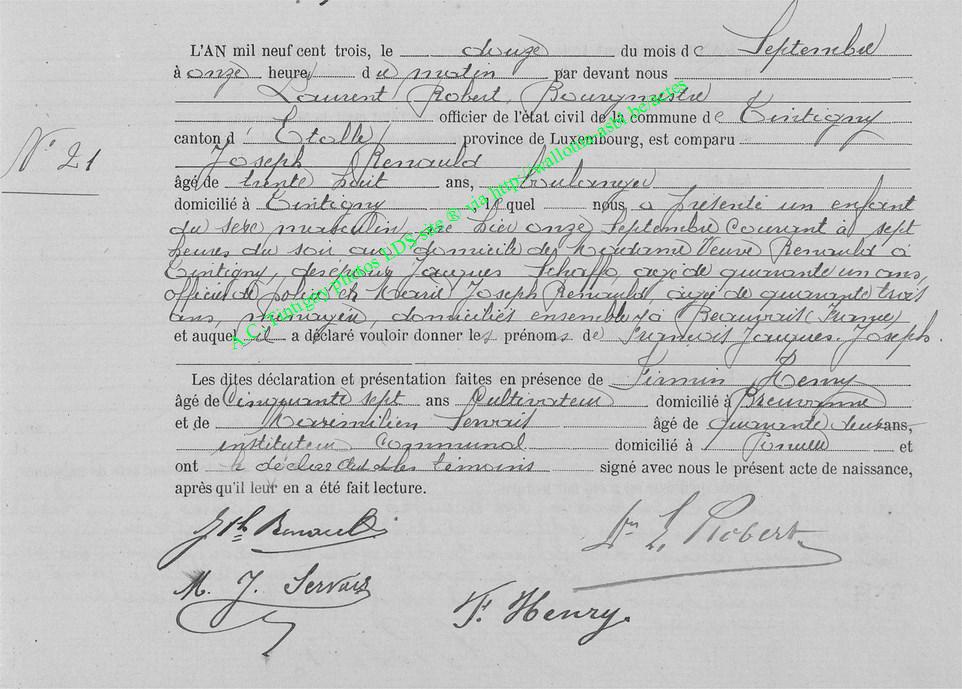 L'AN mil neuf cent trois, le douze du mois de Septembre
à onze heures du matin par devant nous
Laurent Robert, Bourgmestre
officier de l'état civil de la commune de Tintigny
canton d'Etalle province de Luxembourg, est comparu
N° 21
Joseph Renauld
âgé de trente huit ans, boulanger
domicilié à Tintigny, lequel nous a présenté un enfant
du sexe masculin, né hier onze Septembre Courant à sept
heures du soir au domicile de Madame Veuve Renauld à
Tintigny, des époux Jacques Schaffo, agé de quarante un ans,
officier de police et Marie Joseph Renauld, agée de quarante trois
ans, ménagère, domiciliés ensemble à Beauvais (France)
et auquel il a déclaré vouloir donner les prénoms de François Jacques Joseph.
Les dites déclaration et présentation faites en présence de Firmin Henry
âgé de Cinquante sept ans Cultivateur domicilié à Breuvanne
et de Maximilien Servais âgé de quarante deux ans,
instituteur Communal domicilié à et
ont le déclarant et les témoins signé avec nous le présent acte de naissance,
après qu'il leur en a été fait lecture.
Jph Renauld
L. Robert
M. J. Servais
F. Henry.
A.C. Tintigny photos LDS site ® via http://wallonia.asbl.be/actes